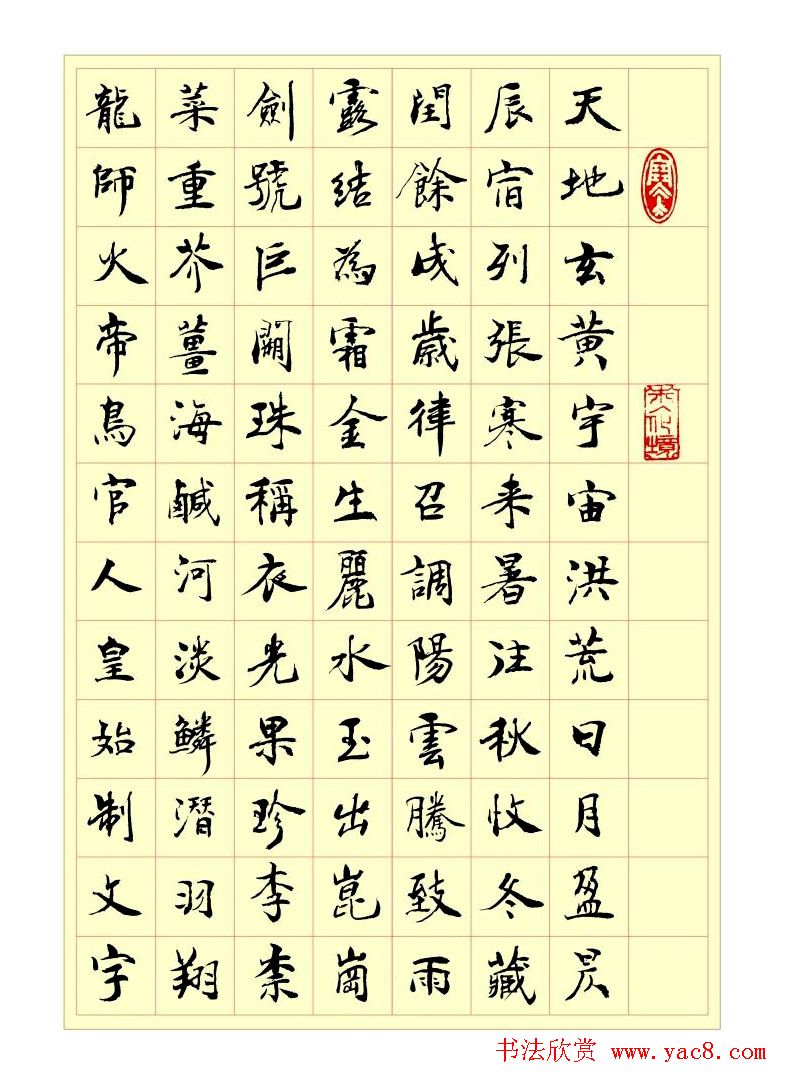 天地玄黃宇宙洪荒日月盈昃
辰宿列張寒来暑往秋收冬藏
閏餘成歲律召調陽雲騰致雨
露結為霜金生麗水玉出崑崗
劍號巨闕珠稱夜光果珍李柰
菜重芥薑海鹹河淡鱗潛羽翔
龍師火帝鳥官人皇始制文字
书法欣赏 www.yac8.com